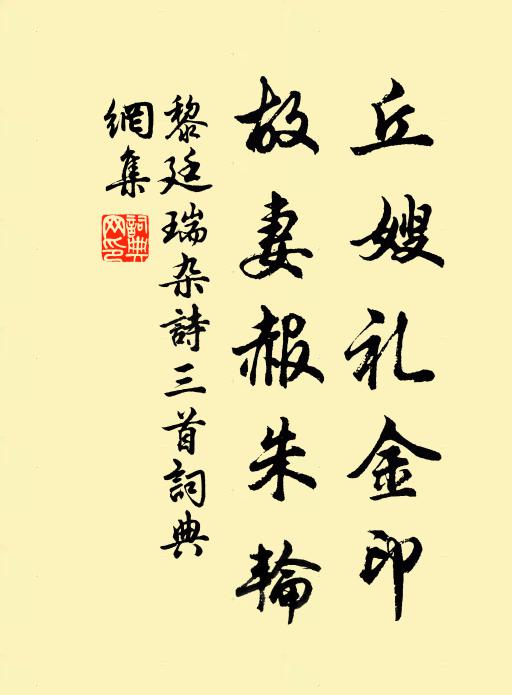 丘嫂礼金印
故妻赧朱輪
黎廷瑞杂詩三首詞典
網集
詞典
网印